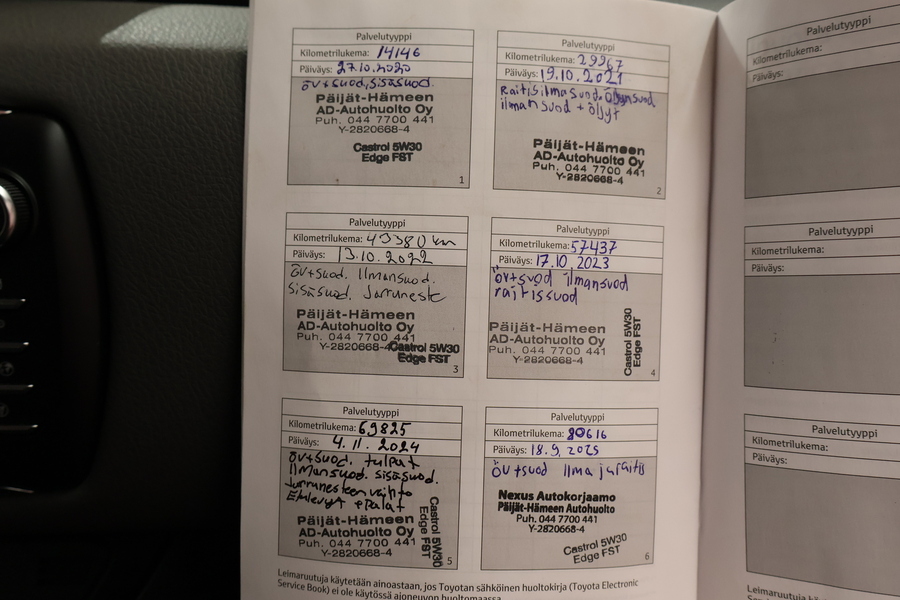 Palvelutyyppi
Kilometrilukema: 14146
Päiväys: 27.10.2020
öv+suod, sisäsuod.
Päijät-Hämeen
AD-Autohuolto Oy
Puh. 044 7700 441
Y-2820668-4
Castrol 5W30
Edge FST
1
Palvelutyyppi
Kilometrilukema: 29967
Päiväys: 19.10.2021
Raitisilmasuod. Öljynsuod
ilmansuod + öljyt
Päijät-Hämeen
AD-Autohuolto Oy
Puh. 044 7700 441
Y-2820668-4
2
Palvelutyyppi
Kilometrilukema: 43380 km
Päiväys: 13.10.2022
öv+suod. Ilmansuod.
sisäsuod. Jarruneste
Päijät-Hämeen
AD-Autohuolto Oy
Puh. 044 7700 441
Y-2820668-4
Castrol 5W30
Edge FST
3
Palvelutyyppi
Kilometrilukema: 57437
Päiväys: 17.10 2023
öv+suod ilmansuod
raitissuod
Päijät-Hämeen
AD-Autohuolto Oy
Puh. 044 7700 441
Y-2820668-4
Castrol 5W30
Edge FST
4
Palvelutyyppi
Kilometrilukema: 69825
Päiväys: 4.11.2024
öv+suod. tulpat
Ilmansuod. sisäsuod.
Jarrunesteen vaihto
Päijät-Hämeen
AD-Autohuolto Oy
Puh. 044 7700 441
Y-2820668-4
Castrol 5W30
Edge FST
5
Palvelutyyppi
Kilometrilukema: 80616
Päiväys: 18.9.2025
Öv+suod Ilma ja raitis
Nexus Autokorjaamo
Päijät-Hämeen Autohuolto
Puh. 044 7700 441
Y-2820668-4
Castrol 5W30
Edge FST
6
Leimaruutuja käytetään ainoastaan, jos Toyotan sähköinen huoltokirja (Toyota Electronic
Service Book) ei ole käytössä ajoneuvon huoltomaassa.
Palvelutyyppi
Kilometrilukema:
Päiväys:
Palvelutyyppi
Kilometrilukema:
Päiväys:
Palvelutyyppi
Kilometrilukema:
Päiväys:
Leimaruutuja